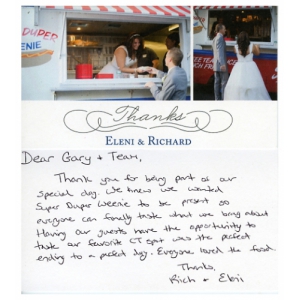 DUPER
ENIE
Thanks
ELENI & RICHARD
Dear Gary + Team,
Thank you for being part of our
special day. We knew we wanted
Super Duper Weenie to be present so
everyone can finally taste what we brag about
Having our guests have the opportunity to
taste our favorite CT spot was the perfect
ending to a perfect day. Everyone loved the food.
Thanks,
Rich + Eleni